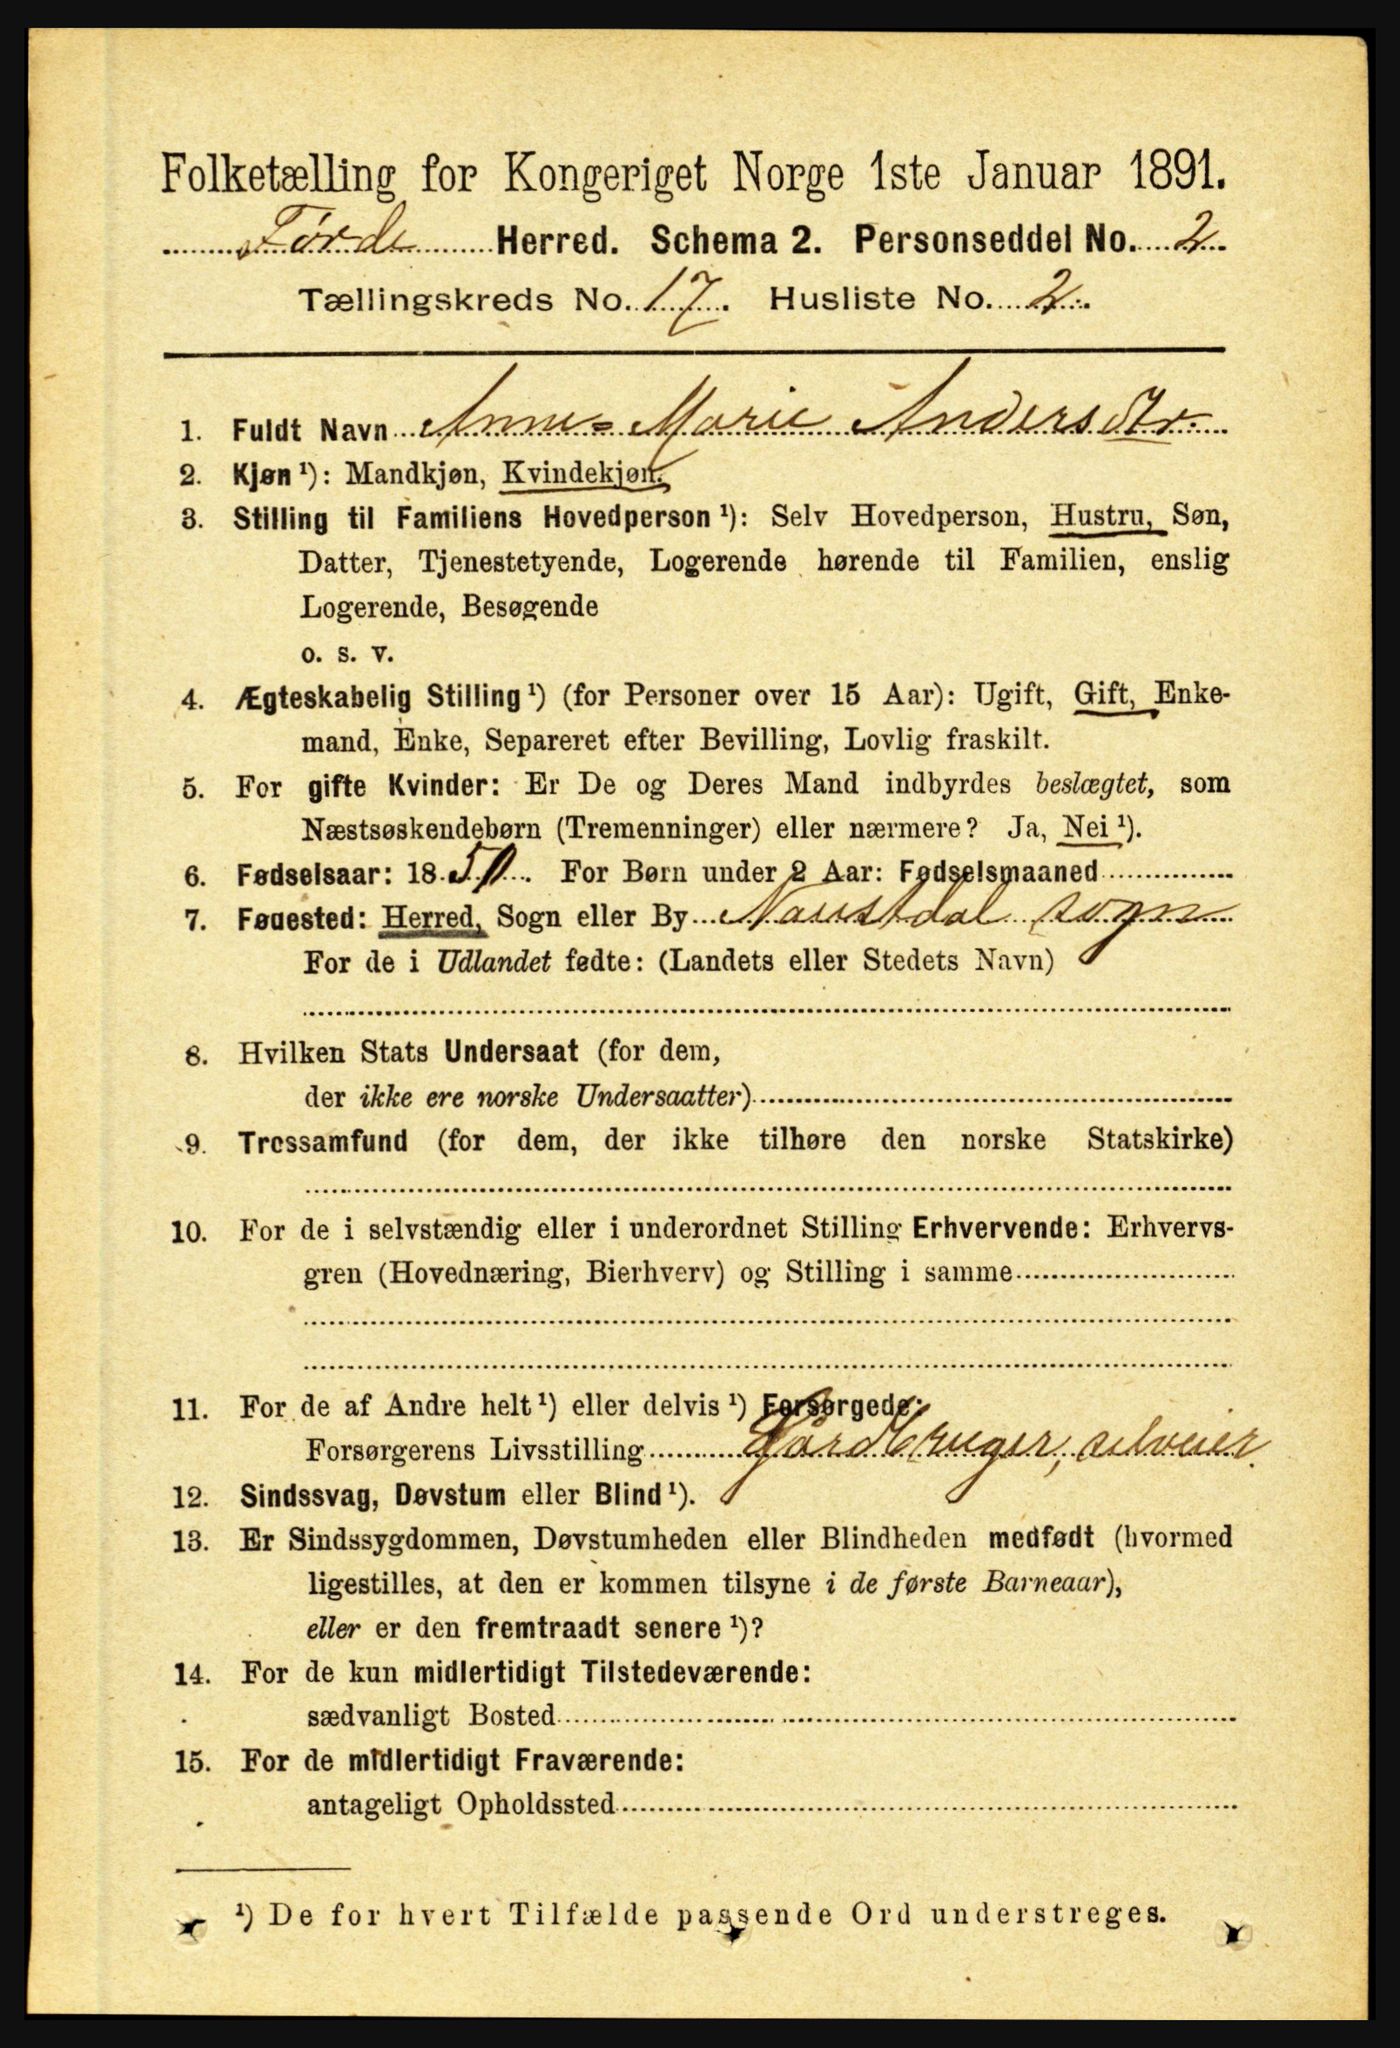 Folketælling for Kongeriget Norge 1ste Januar 1891.
Førde Herred. Schema 2. Personseddel No. 2.
Tællingskreds No. 17. Husliste No. 2.
1. Fuldt Navn Anne-Marie Andersdtr.
2. Kjøn ¹): Mandkjøn, Kvindekjøn.
3. Stilling til Familiens Hovedperson ¹): Selv Hovedperson, Hustru, Søn,
Datter, Tjenestetyende, Logerende hørende til Familien, enslig
Logerende, Besøgende
o. s. v.
4. Ægteskabelig Stilling ¹) (for Personer over 15 Aar): Ugift, Gift, Enke-
mand, Enke, Separeret efter Bevilling, Lovlig fraskilt.
5. For gifte Kvinder: Er De og Deres Mand indbyrdes beslægtet, som
Næstsøskendebørn (Tremenninger) eller nærmere? Ja, Nei ¹).
6. Fødselsaar: 1850. For Børn under 2 Aar: Fødselsmaaned
7. Føuested: Herred, Sogn eller By Naustdal sogn
For de i Udlandet fødte: (Landets eller Stedets Navn)
8. Hvilken Stats Undersaat (for dem,
der ikke ere norske Undersaatter)
9. Trossamfund (for dem, der ikke tilhøre den norske Statskirke)
10. For de i selvstændig eller i underordnet Stilling Erhvervende: Erhvervs-
gren (Hovednæring, Bierhverv) og Stilling i samme
11. For de af Andre helt ¹) eller delvis ¹) Forsørgede:
Forsørgerens Livsstilling Gårdbruger, selveier.
12. Sindssvag, Døvstum eller Blind ¹).
13. Er Sindssygdommen, Døvstumheden eller Blindheden medfødt (hvormed
ligestilles, at den er kommen tilsyne i de første Barneaar),
eller er den fremtraadt senere ¹)?
14. For de kun midlertidigt Tilstedeværende:
sædvanligt Bosted
15. For de midlertidigt Fraværende:
antageligt Opholdssted
¹) De for hvert Tilfælde passende Ord understreges.